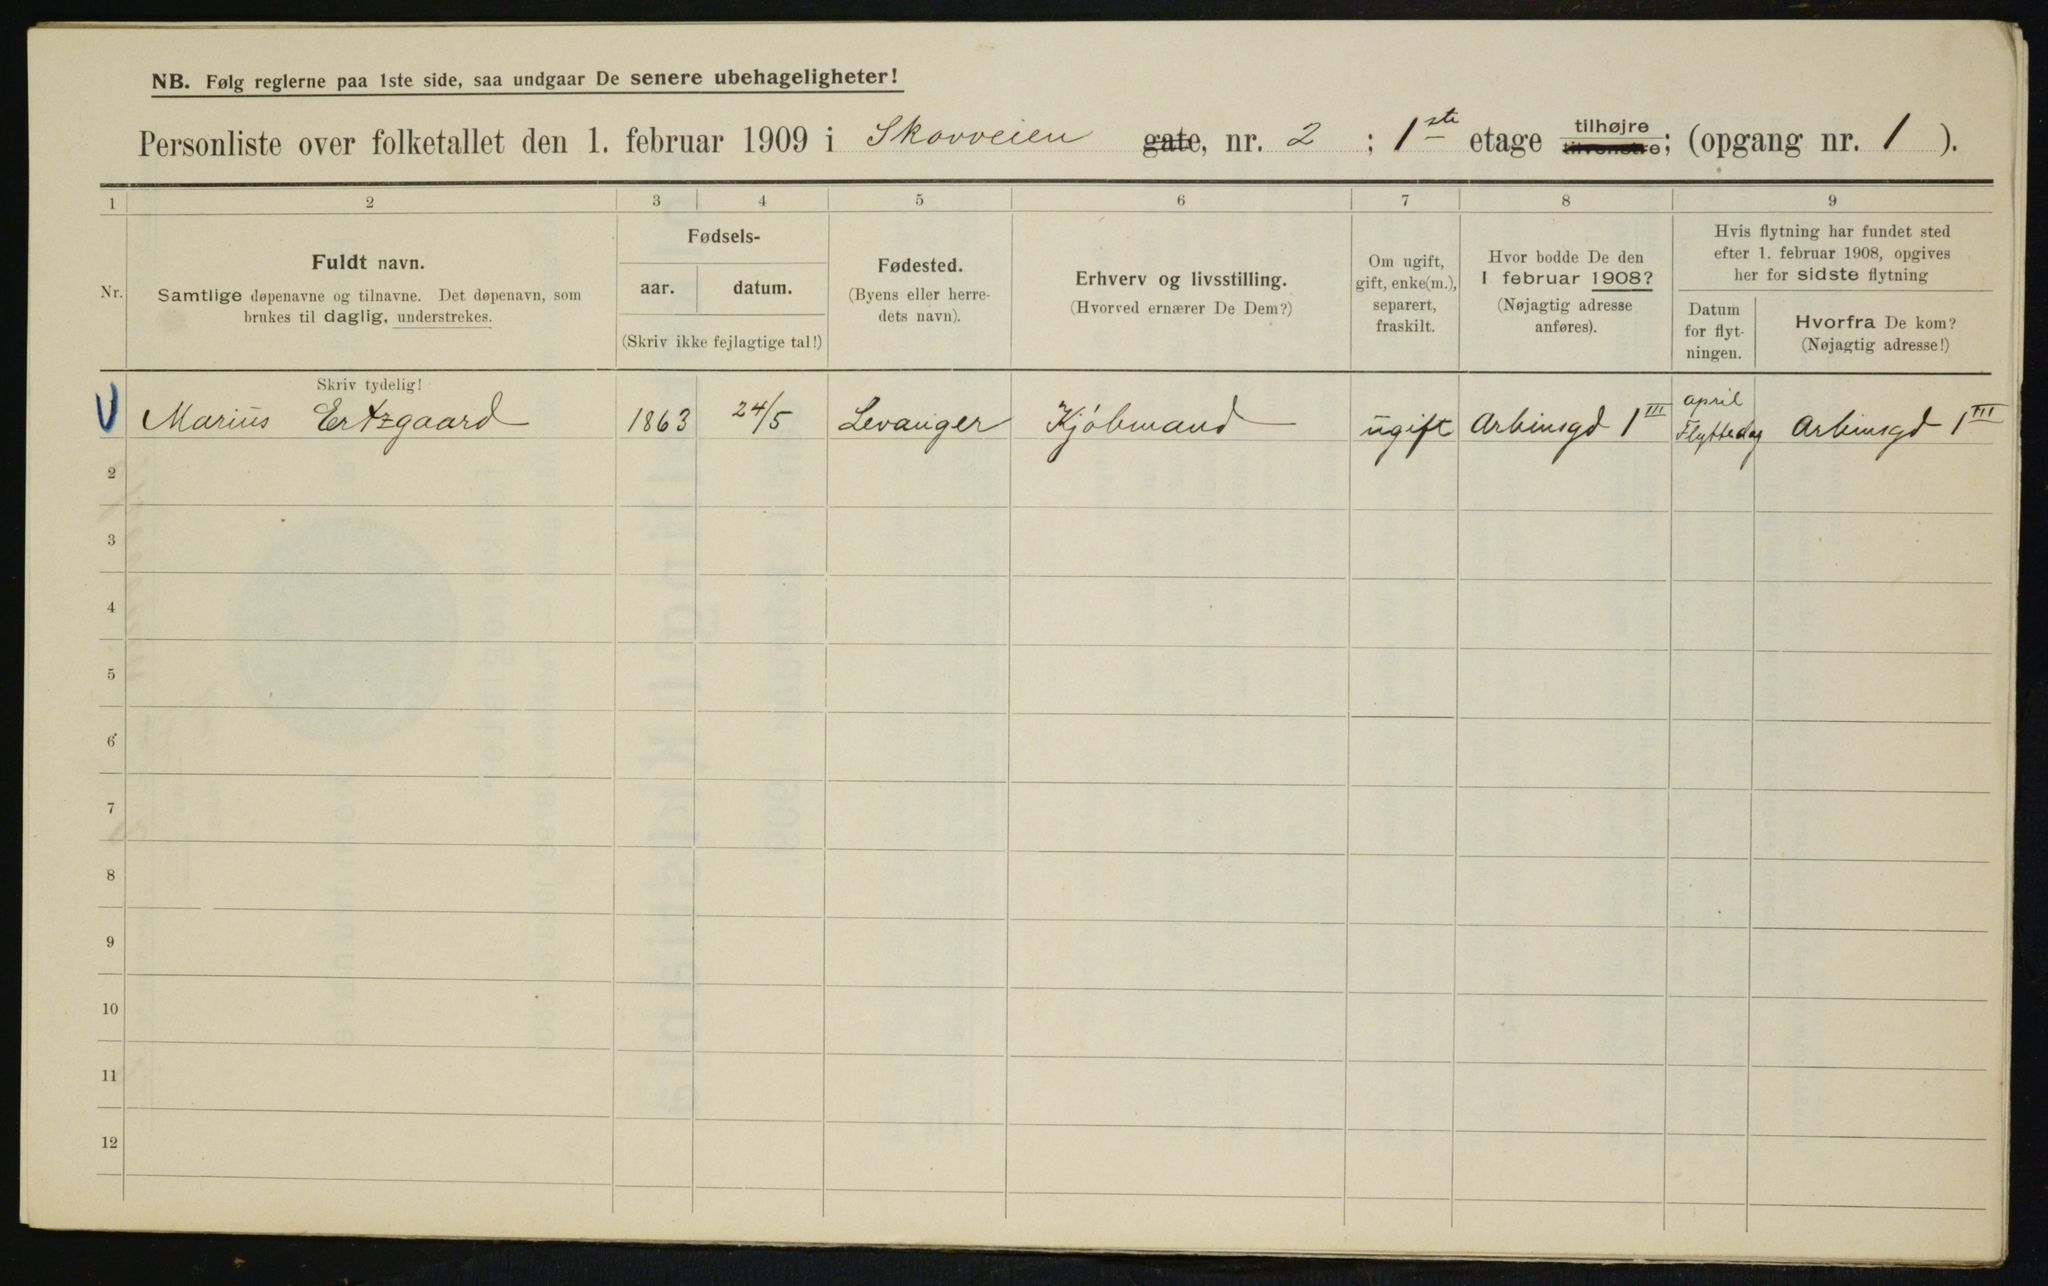 NB. Følg reglerne paa 1ste side, saa undgaar De senere ubehageligheter!
Personliste over folketallet den 1. februar 1909 i Skovveien gate, nr. 2 ; 1ste etage tilhøjre tilvenstre; (opgang nr. 1 ).
1 2 3 4 5 6 7 8 9
Nr.
Fuldt navn.
Samtlige døpenavne og tilnavne. Det døpenavn, som
brukes til daglig, understrekes.
Fødsels-
aar. datum.
(Skriv ikke fejlagtige tal!)
Fødested.
(Byens eller herre-
dets navn).
Erhverv og livsstilling.
(Hvorved ernærer De Dem?)
Om ugift,
gift, enke(m.),
separert,
fraskilt.
Hvor bodde De den
1 februar 1908?
(Nøjagtig adresse
anføres).
Hvis flytning har fundet sted
efter 1. februar 1908, opgives
her for sidste flytning
Datum
for flyt-
ningen.
Hvorfra De kom?
(Nøjagtig adresse!)
Skriv tydelig!
Marius Ertzgaard 1863 24/5 Levanger Kjøbmand ugift Arbinsgd 1 III april Flyttedag Arbinsgd 1 III
2
3
4
5
6
7
8
9
10
11
12